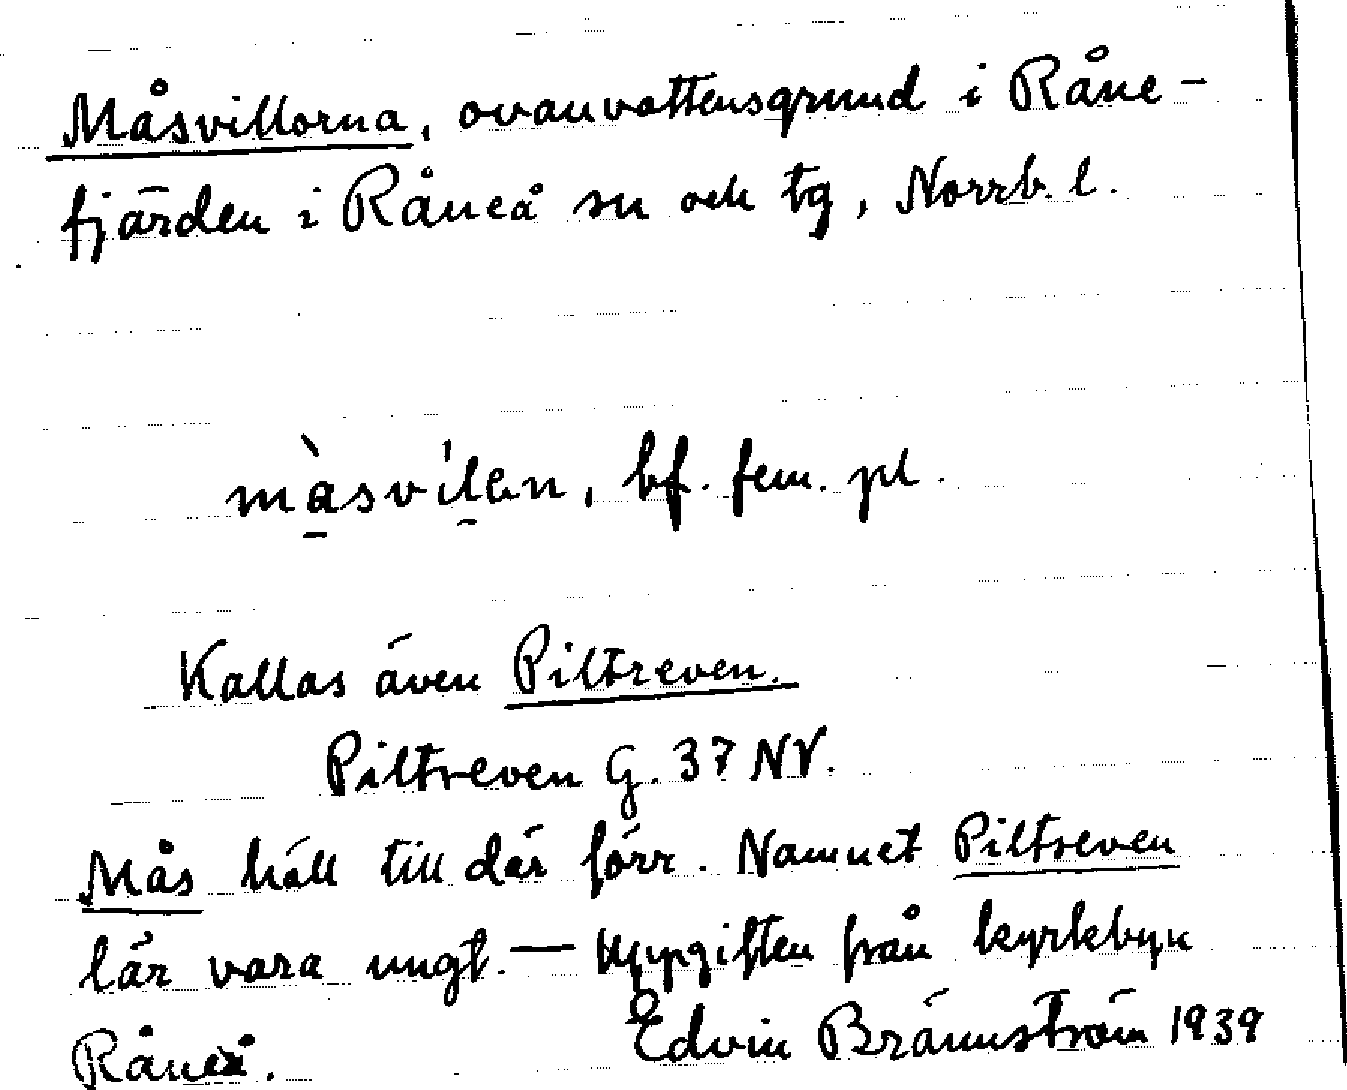 Måsvillorna, ovanvattensgrund i Råne-
fjärden i Råneå sn och tg, Norrb. l.
bf. fem. pl.
Kallas även Piltreven.
Piltreven G. 37 NV.
Mås höll till där förr. Namnet Piltreven
lär vara ungt. — Uppgiften från kyrkbyn
Råneå. Edvin Brännström 1939